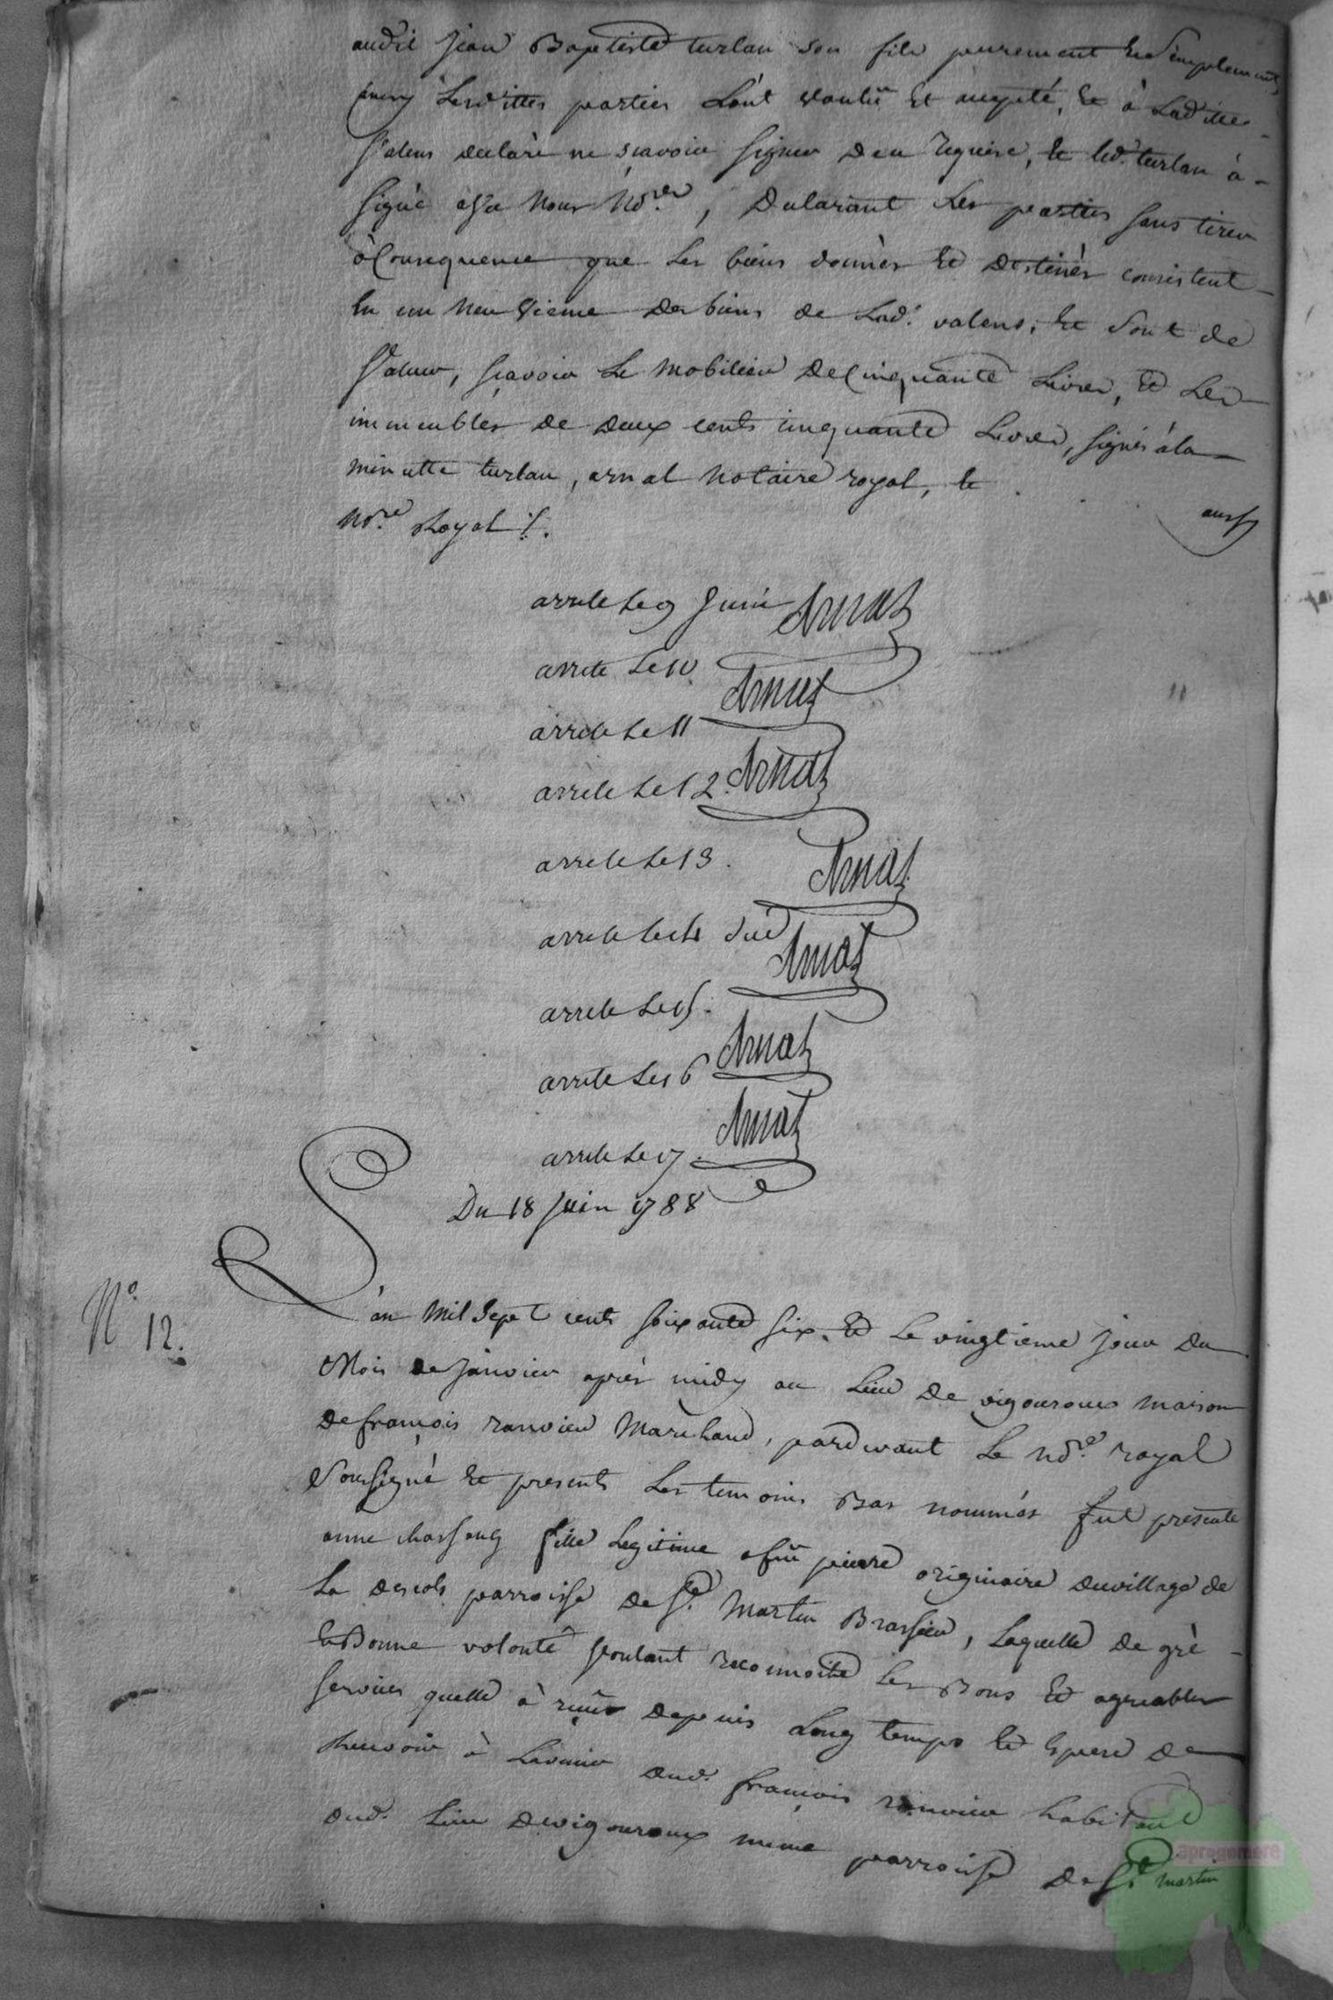 audit Jean Baptiste turlan son fils purement et simplement
lesdittes parties l'ont voulu et accepté, et a Ladite
Valens declaré ne scavoir signer de ce requise, et led. turlan à
signé avec Nous No.re, Declarant Les parties sans tirer
a Consequence que Les biens donnés et destinés consistent
En un neuvieme des biens de Lad. valens, et sont de
Valeur, scavoir Le mobilier de Cinquante Livres, et Les
immeubles de deux cents cinquante Livres, signés à la
minutte turlan, arnal notaire royal, et
No.re Royal
arrete Le 9 Juin Arnal
arrete Le 10 Arnal
arrete Le 11 Arnal
arrete Le 12. Arnal
arrete Le 13. Arnal
arrete Le 14 Arnal
arrete Le 15. Arnal
arrete Le 16 Arnal
arrete Le 17.
Du 18 Juin 1788
N.o 12.
L'an Mil Sept cents soixante six, et Le vingtieme jour du
Mois de Janvier après midy au Lieu de vigouroux maison
de françois ranvier Marchand, pardevant Le No.re royal
Soussigné et presents Les temoins Bas nommés fut presente
anne fille Legitime a feu pierre originaire du village de
La parroisse de S.t Martin, Laquelle de gré
et Bonne volonté voulant reconnoitre Les Bons et agreables
services quelle à reçus depuis Long temps et Espere de
recevoir à L'avenir dud. françois ranvier habitant
dud. Lieu de vigouroux meme parroisse de S.t martin
apregomere